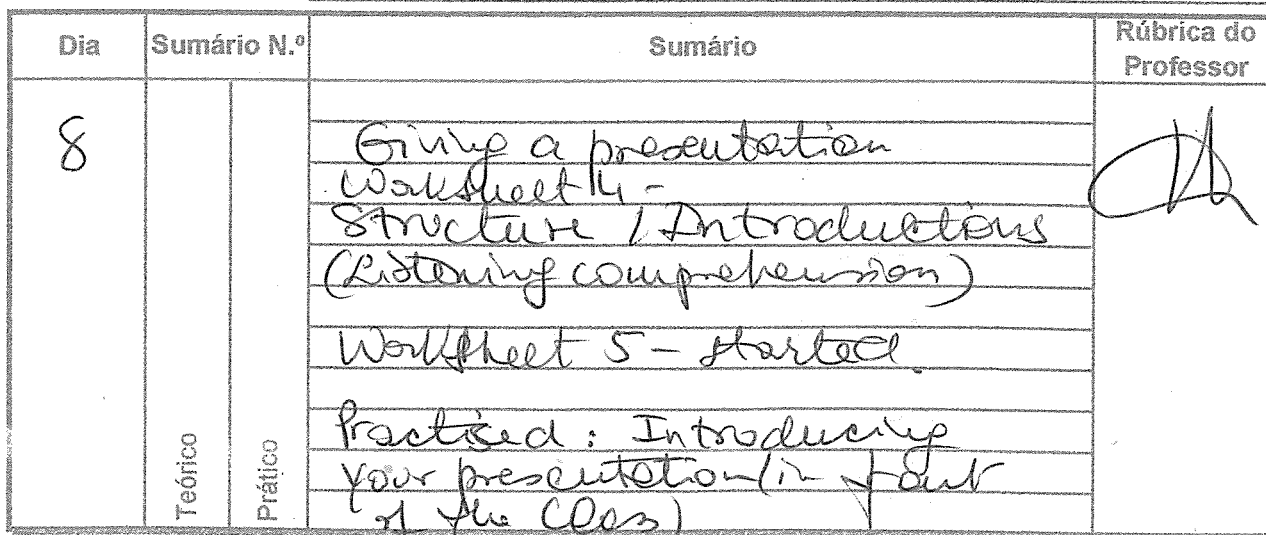 Dia Sumário N.º Sumário Rúbrica do Professor
8
Giving a presentation
Worksheet 4 -
Structure / Introductions
(Listening comprehension)
Worksheet 5 - started.
Practised : Introducing
your presentation (in front
of the class)
Teórico
Prático